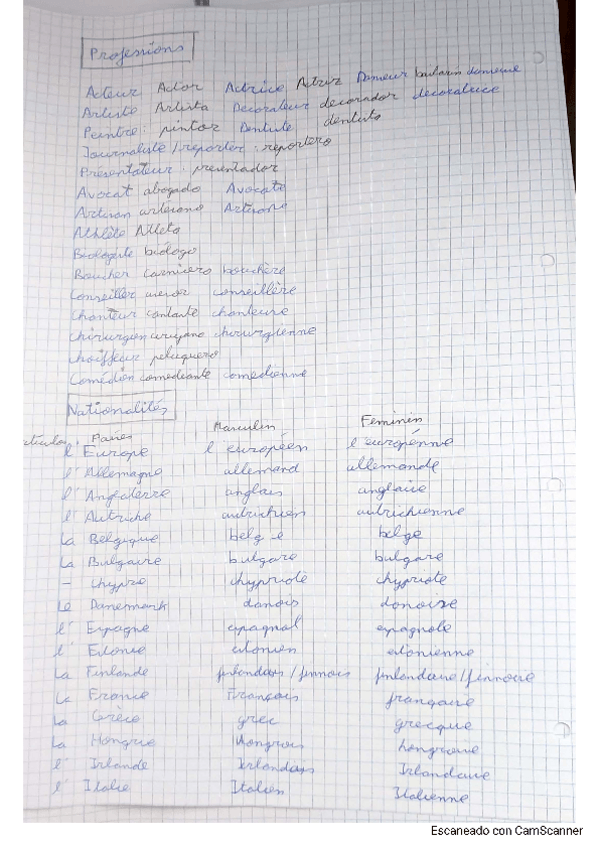 Professions
Acteur Actor Actrice Actriz Danseur bailarin danseuse
Artiste Artista Decorateur decorador decoratrice
Peintre: pintor Dentiste dentista
Journaliste / reporter: reportero
Présentateur: presentador
Avocat abogado Avocate
Artisan artesano Artisane
Athlète Atleta
Biologiste biologo
Boucher carnicero bouchère
Conseiller asesor conseillère
Chanteur cantante chanteuse
Chirurgien cirujano chirurgienne
Choiffeur peluquero
Comédien comediante comedienne
Nationalités
Paises Masculin Feminin
l' Europe l' européen l'européenne
l' Allemagne allemand allemande
l' Angleterre anglais anglaise
l' Autriche autrichien autrichienne
La Belgique belge belge
La Bulgarie bulgare bulgare
- Chypre chypriote chypriote
Le Danemark danois danoise
l' Espagne espagnol espagnole
l' Estonie estonien estonienne
La Finlande finlandais / finnois finlandaise / finnoise
La France Français française
La Grèce grec grecque
La Hongrie Hongrois hongroise
l' Irlande Irlandais Irlandaise
l' Italie Italien Italienne
Escaneado con CamScanner